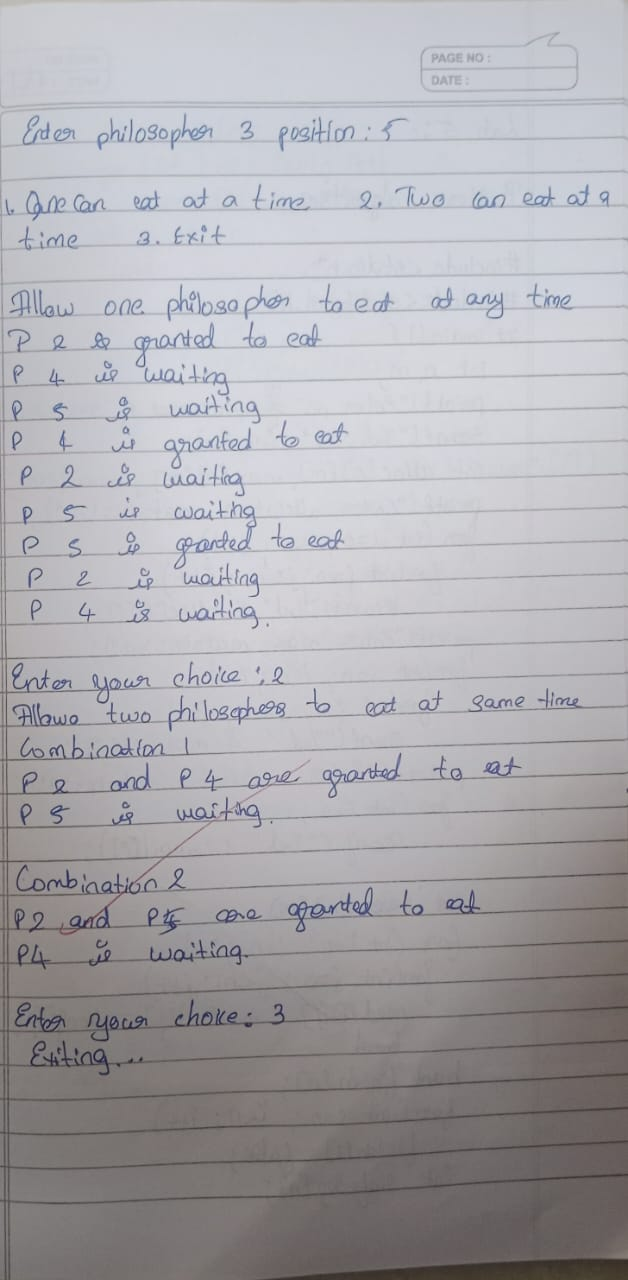 PAGE NO :
DATE :
Enter philosopher 3 position : 5
1. One can eat at a time 2. Two can eat at a
time 3. Exit
Allow one philosopher to eat at any time
P 2 is granted to eat
P 4 is waiting
P 5 is waiting
P 4 is granted to eat
P 2 is waiting
P 5 is waiting
P 5 is granted to eat
P 2 is waiting
P 4 is waiting.
Enter your choice : 2
Allows two philosophers to eat at same time
Combination 1
P 2 and P 4 are granted to eat
P 5 is waiting.
Combination 2
P2 and P5 are granted to eat
P4 is waiting.
Enter your choice : 3
Exiting...